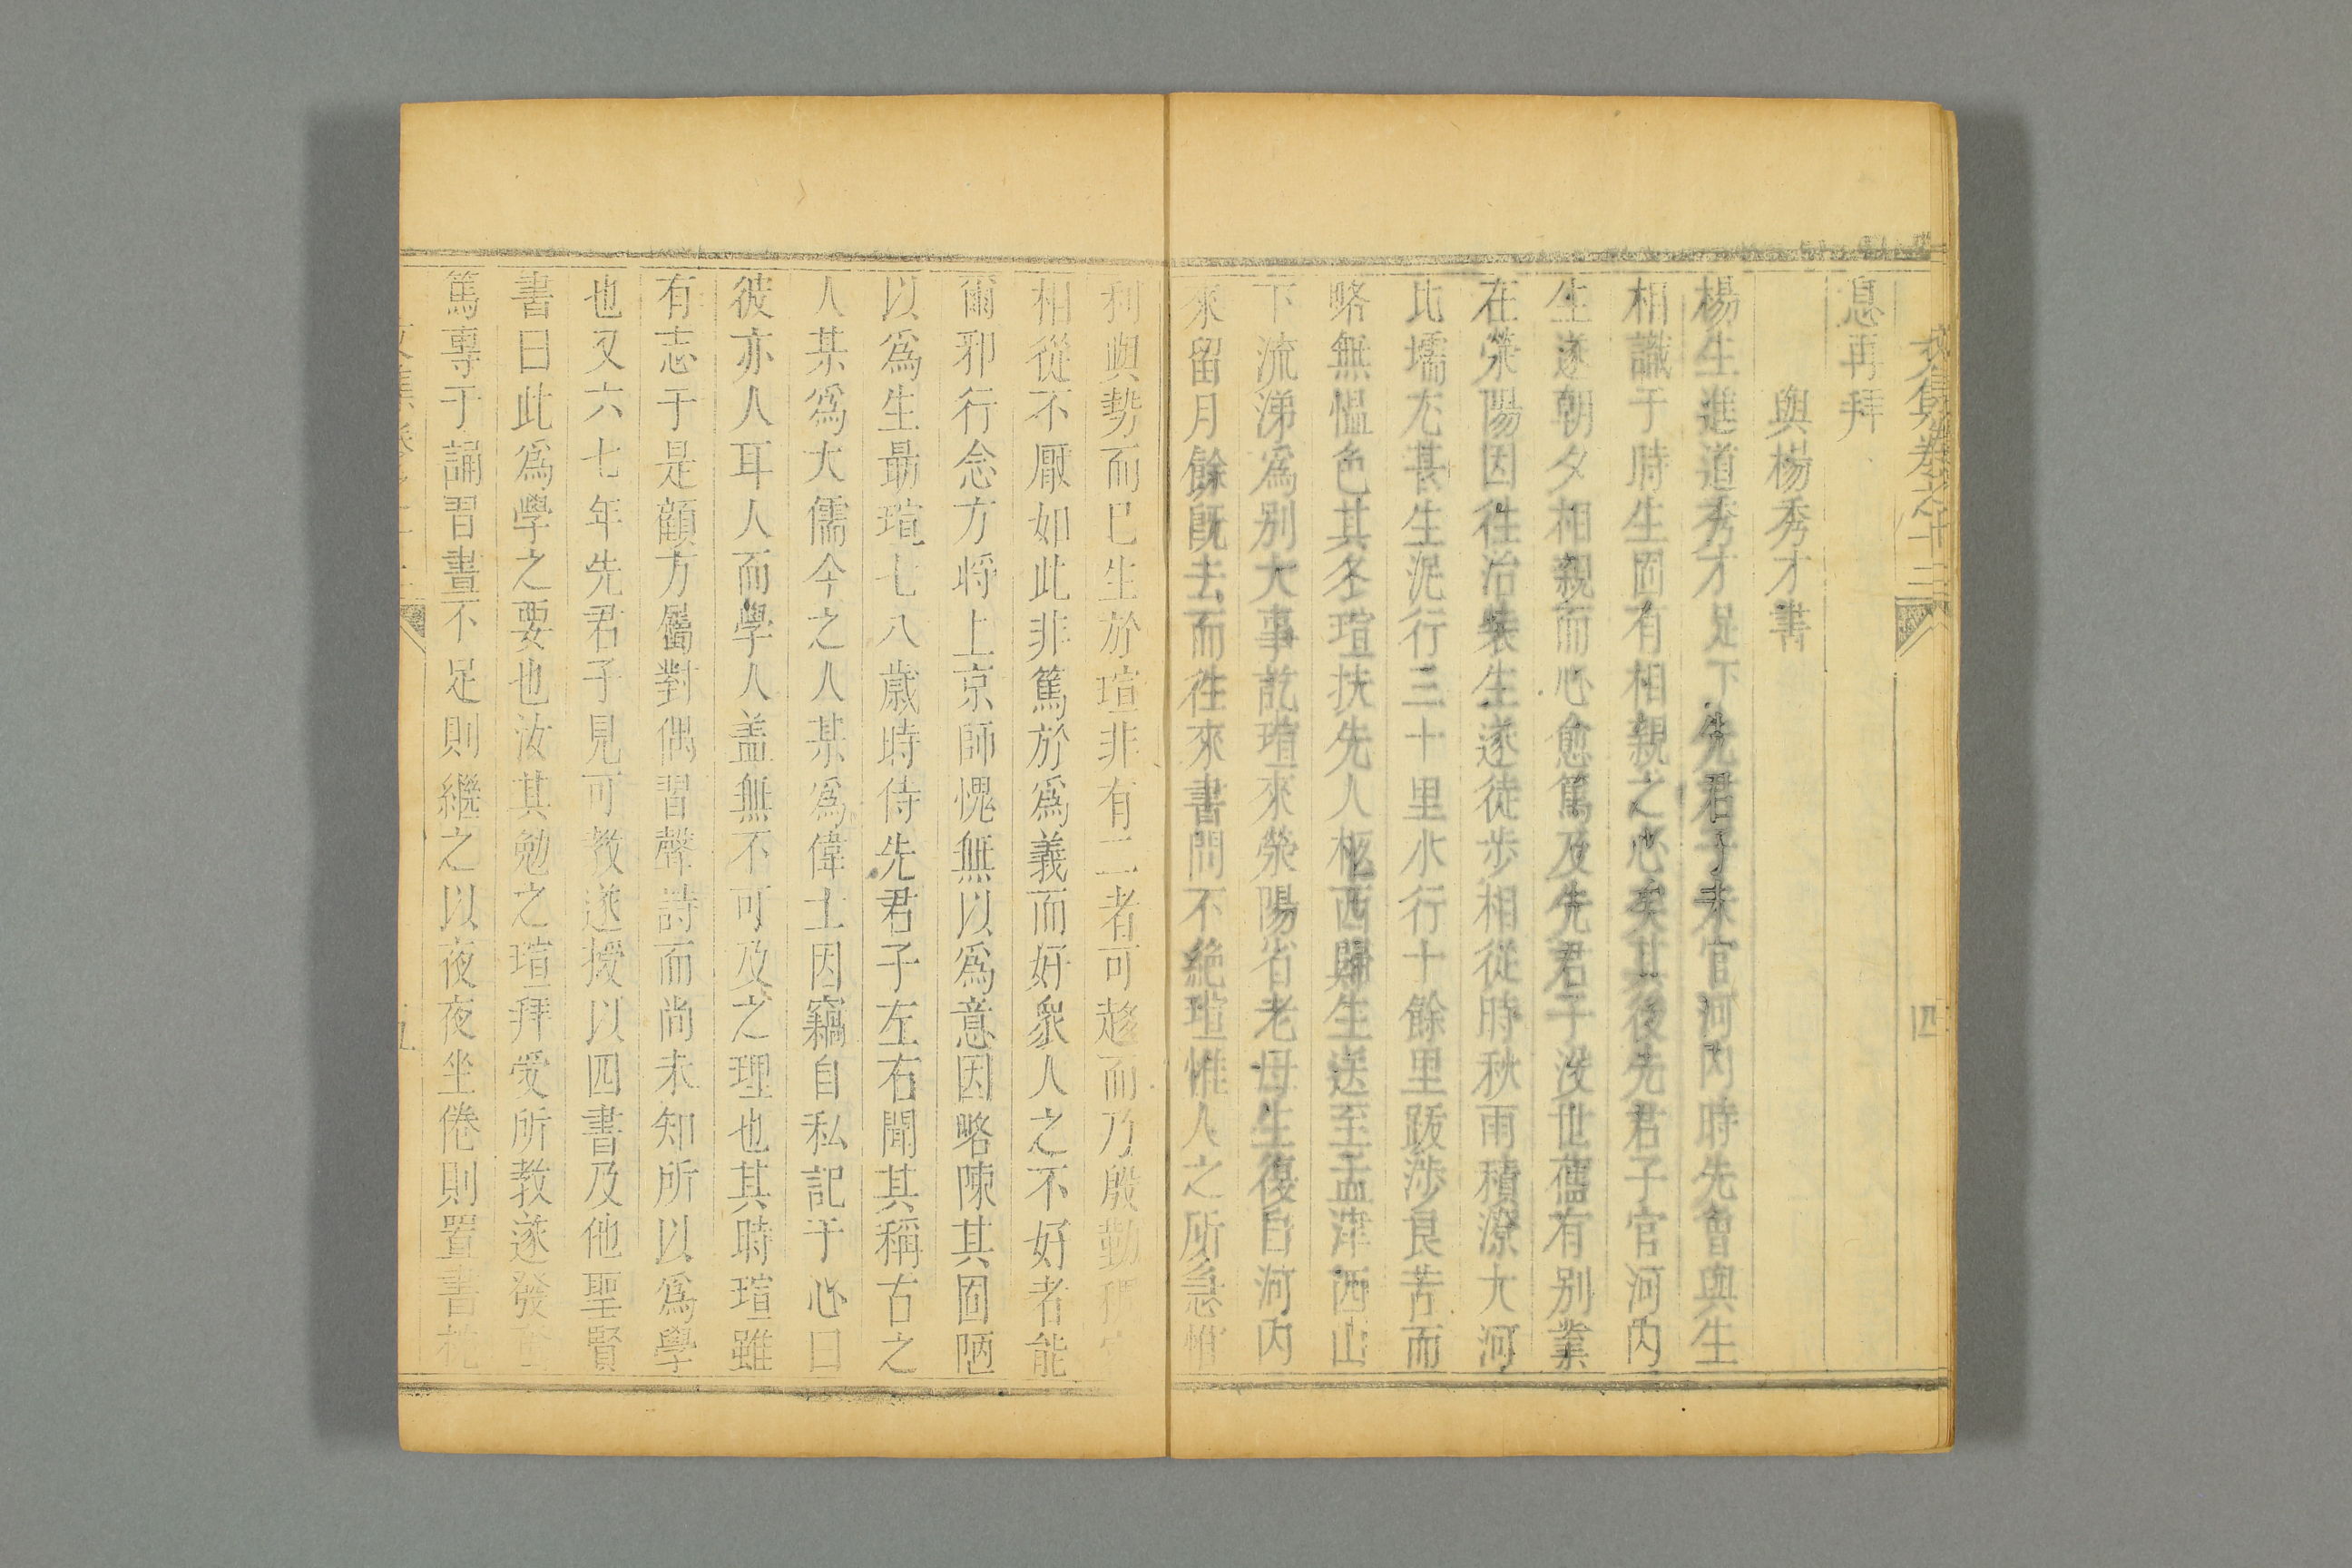 文集卷之十二
四
息再拜
與楊秀才書
楊生進道秀才足下先君子未官河内時先曾與生
相識于時生固有相親之心矣其後先君子官河内
生遂朝夕相親而心愈篤及先君子没世舊有别業
在滎陽因往治裝生遂徒步相從時秋雨積潦大河
比壖尤甚生泥行三十里水行十餘里跋涉良苦而
略無愠色其冬瑄扶先人柩西歸生送至孟津西山
下流涕爲别大事訖瑄來滎陽省老母生復自河内
來留月餘既去而徃來書問不絶瑄惟人之所急惟
利與勢而巳生於瑄非有二者可趍而乃殷勤
相從不厭如此非篤於爲義而好衆人之不好者能
爾邪行念方將上京師愧無以爲意因略陳其固陋
以爲生最瑄七八歲時侍先君子左右聞其稱古之
人某爲大儒今之人某爲偉士因竊自私記于心曰
彼亦人耳人而學人盖無不可及之理也其時瑄雖
有志于是顧方屬對偶習聲詩而尚未知所以爲學
也又六七年先君子見可教遂授以四書及他聖賢
書曰此爲學之要也汝其勉之瑄拜受所教遂發奮
篤專于誦習晝不足則繼之以夜夜坐倦則置書枕